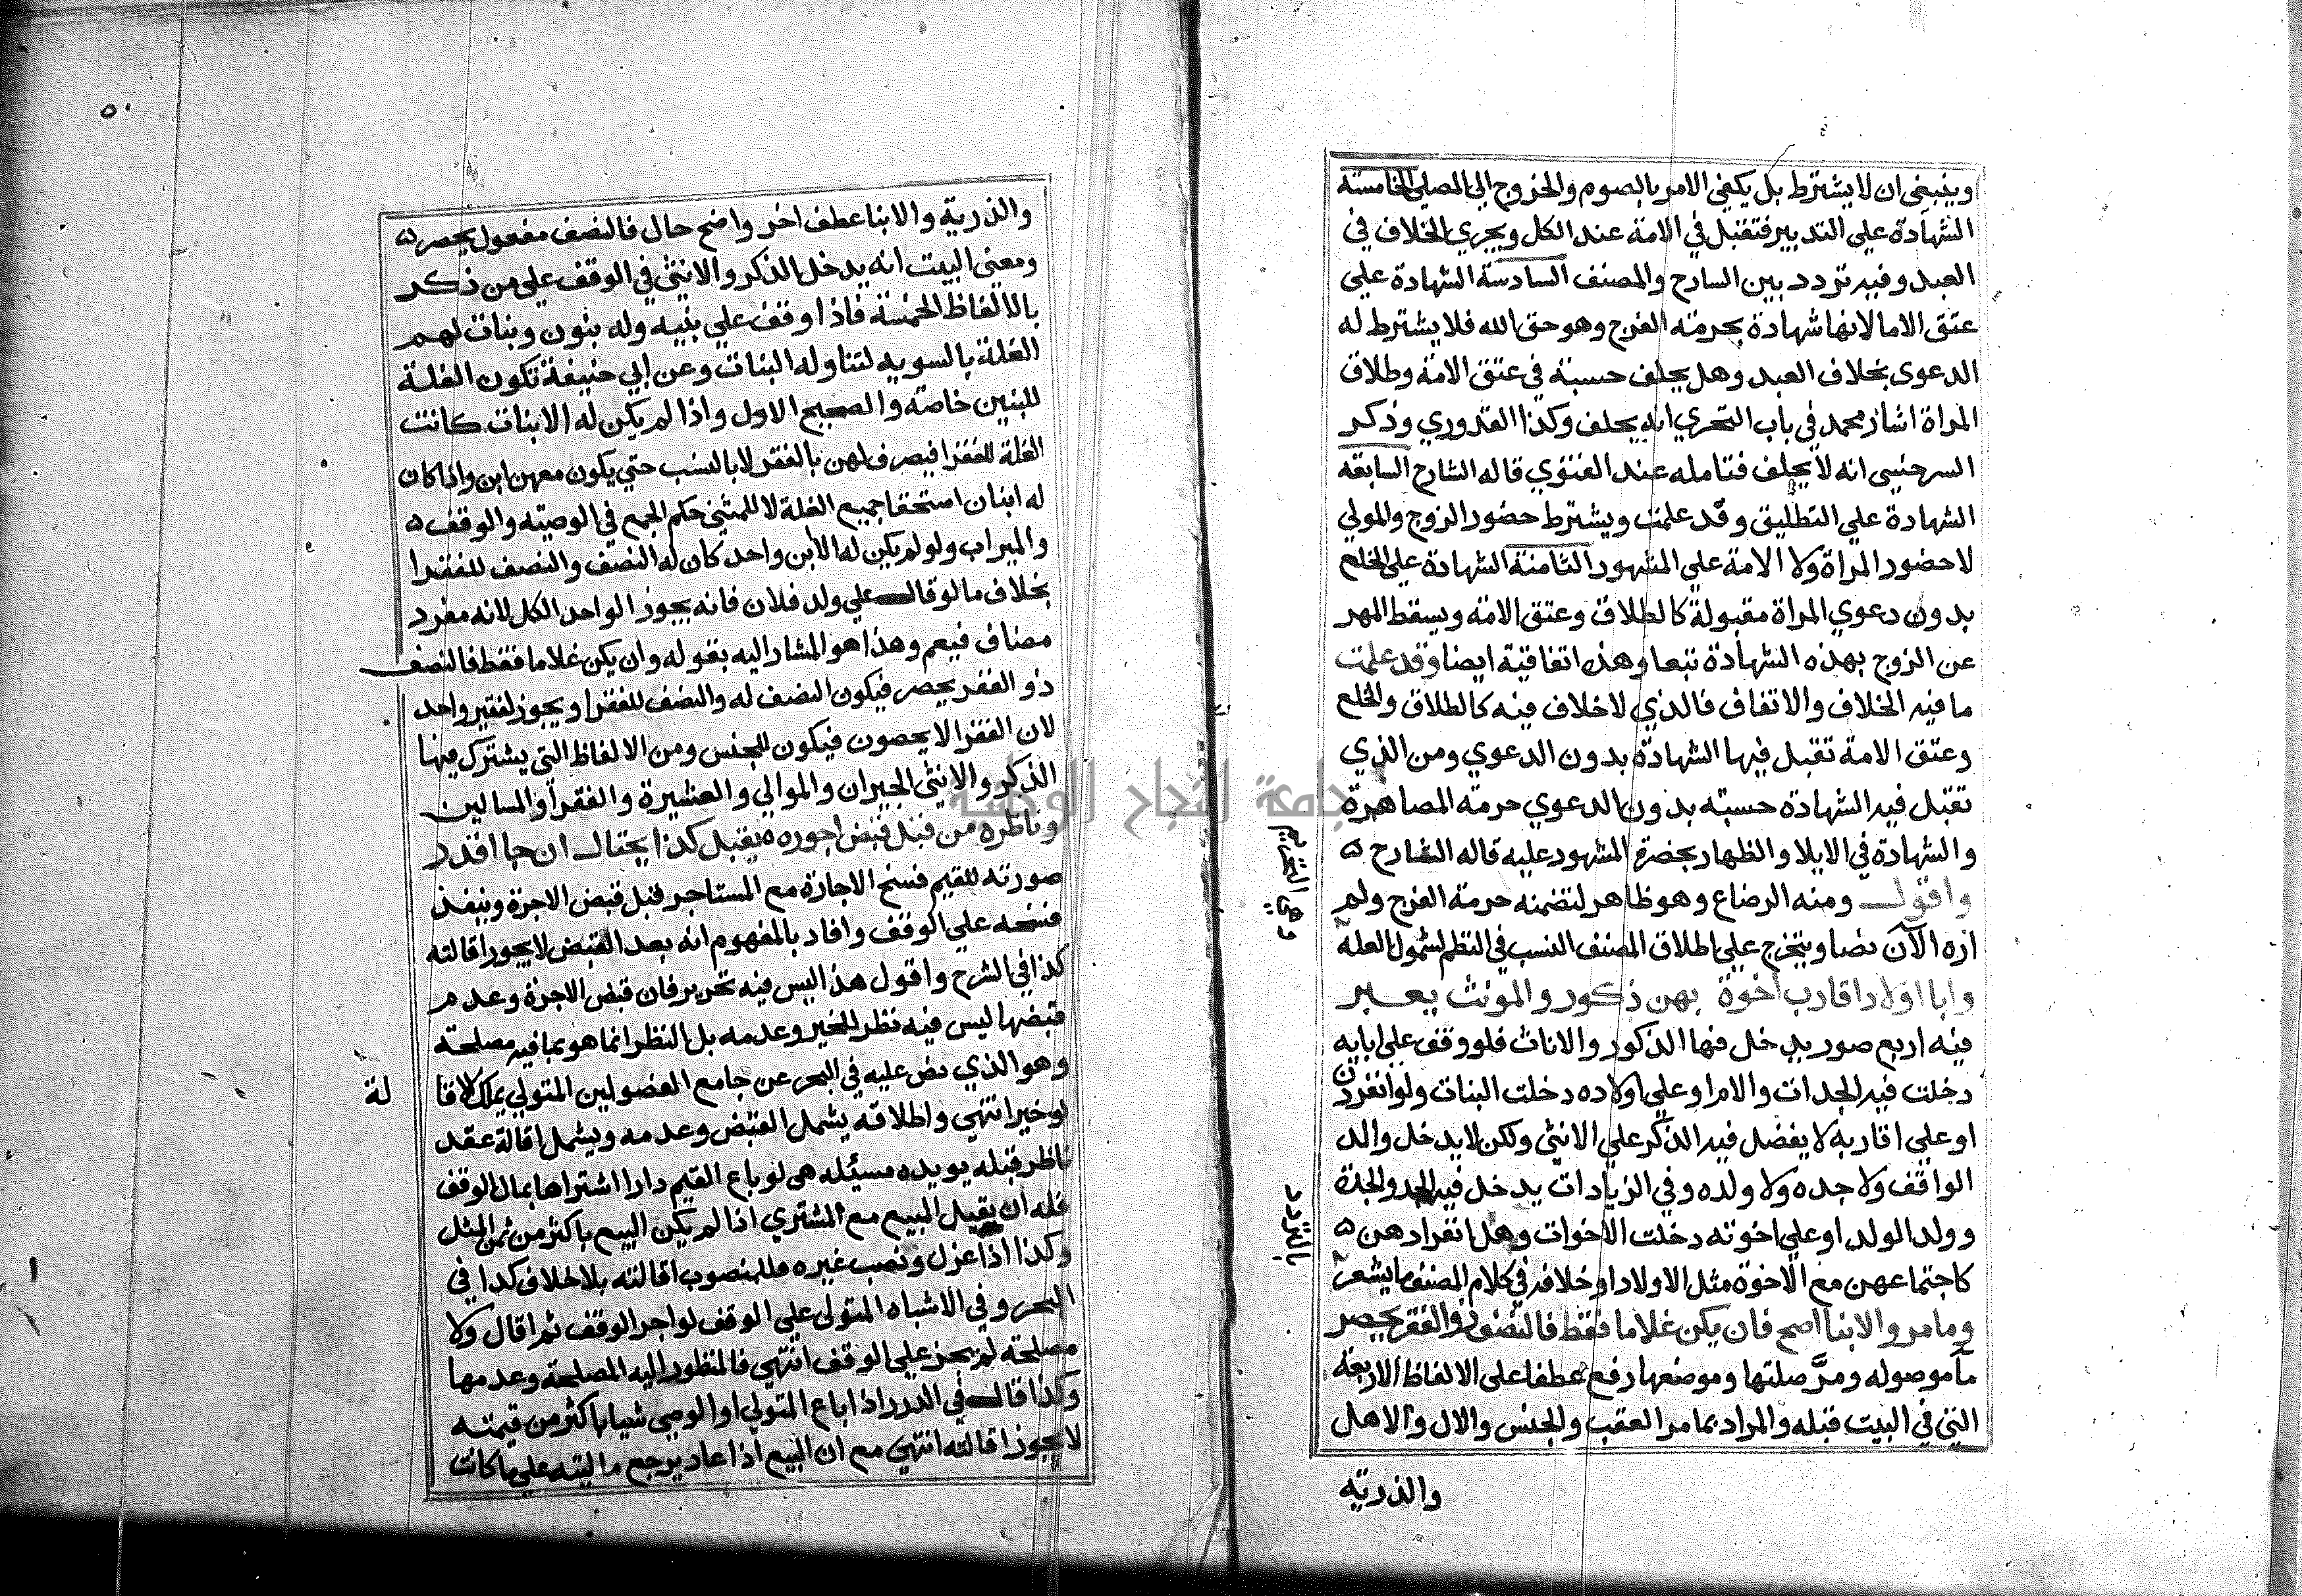 وينبغي ان لا يشترط بل يكفي الامر بالصوم والخروج الي المصلي الخامسة
الشهادة علي التدبير فتقبل في الامة عند الكل ويجري الخلاف في
العبد وفيه تردد بين الشارح والمصنف السادسة الشهادة علي
عتق الاما لانها شهادة بحرمة الفرج وهو حق الله فلا يشترط له
الدعوي بخلاف العبد وهل يحلف حسبة في عتق الامة وطلاق
المراة اشار محمد في باب التحري انه يحلف وكذا القدوري وذكر
السرخسي انه لا يحلف فتامله عند الفتوي قاله الشارح السابعة
الشهادة علي التطليق وقد علمت ويشترط حضور الزوج والمولي
لا حضور المراة ولا الامة علي المشهور الثامنة الشهادة علي الخلع
بدون دعوي المراة مقبولة كالطلاق وعتق الامة ويسقط المهر
عن الزوج بهذه الشهادة تبعا وهذه اتفاقية ايضا وقد علمت
ما فيه الخلاف والاتفاق فالذي لا خلاف فيه كالطلاق والخلع
وعتق الامة تقبل فيها الشهادة بدون الدعوي ومن الذي
تقبل فيه الشهادة حسبة بدون الدعوي حرمة المصاهرة
والشهادة في الايلا والظهار بحضرة المشهود عليه قاله الشارح ه
واقول ومنه الرضاع وهو ظاهر لتضمنه حرمة الفرج ولم
اره الآن نصا ويتخرج علي اطلاق المصنف النسب في النظم لشمول العلة
وابا اولاد اقارب اخوة بهن ذكور والمونث يعبر
فيه اربع صور يدخل فيها الذكور والاناث فلو وقف علي ابايه
دخلت فيه الجدات والام او علي اولاده دخلت البنات ولو انفردن
او علي اقاربه لا يفضل فيه الذكر علي الانثي ولكن لا يدخل والد
الواقف ولا جده ولا ولده وفي الزيادات يدخل فيه الجد والجدة
وولد الولد او علي اخوته دخلت الاخوات وهل انفرادهن ه
كاجتماعهن مع الاخوة مثل الاولاد او خلافه في كلام المصنف ما يشعر
وما مر والابنا اصح فان يكن غلاما فقط فالنصف ذو الفقر يحصر
ما موصوله ومر صلتها وموضعها رفع عطفا علي الالفاظ الاربعة
التي في البيت قبله والمراد بما مر العقب والجنس والال والاهل
والذرية
وهي التحريم
بالتردد
جامعة النجاح الوطنية
٥٠
والذرية والابنا عطف اخر واضح حال فالنصف مفعول يحصر ه
ومعني البيت انه يدخل الذكر والانثي في الوقف علي من ذكر
بالالفاظ الخمسة فاذا وقف علي بنيه وله بنون وبنات لهم
الغلة بالسويه لتناوله البنات وعن ابي حنيفة تكون الغلة
للبنين خاصة والصحيح الاول واذا لم يكن له الا بنات كانت
الغلة للفقرا فيصرف لهن بالفقر لا بالنسب حتي يكون معهن ابن واذا كان
له ابنان استحقا جميع الغلة لا للمثني حكم الجمع في الوصيه والوقف ه
والميراب ولو لم يكن له الا ابن واحد كان له النصف والنصف للفقرا
بخلاف ما لو قال علي ولد فلان فانه يجوز الواحد الكل لانه مفرد
مضاف فيعم وهذا هو المشار اليه بقوله وان يكن غلاما فقط فالنصف
ذو الفقر يحصر فيكون النصف له والنصف للفقرا ويجوز لفقير واحد
لان الفقرا لا يحصون فيكون للجنس ومن الالفاظ التي يشترك فيها
الذكر والانثي الجيران والموالي والعشيرة والفقرا والمسالين
وناظره من قبل قبض اجوره يقبل كذا يحتال ان جا اقدر
صورته للقيم فسخ الاجارة مع المستاجر قبل قبض الاجرة وينفذ
فسخه علي الوقف وافاد بالمفهوم انه بعد القبض لا يجوز اقالته
كذا في الشرح واقول هذا ليس فيه تحرير فان قبض الاجرة وعدم
قبضها ليس فيه نظر للخير وعدمه بل النظر انما هو بما فيه مصلحة
وهو الذي نص عليه في البحر عن جامع الفصولين المتولي يملك الاقا
لة
لو خيرا انتهي واطلاقه يشمل القبض وعدمه ويشمل اقالة عقد
ناظر قبله يويده مسئله هي لو باع القيم دارا اشتراها بمال الوقف
فله ان يقيل البيع مع المشتري اذا لم يكن البيع باكثر من ثمن المثل
وكذا اذا عزل ونصب غيره فللمنصوب اقالته بلا خلاف كذا في
البحر وفي الاشباه المتولي علي الوقف لو اجر الوقف ثم اقال ولا
مصلحة لم يجز علي الوقف انتهي فالمنظور اليه المصلحة وعدمها
وكذا قال في الدرر اذا باع المتولي او الوصي شيا باكثر من قيمته
لا يجوز اقالته انتهي مع ان البيع اذا عاد يرجع ماليته علي ما كانت